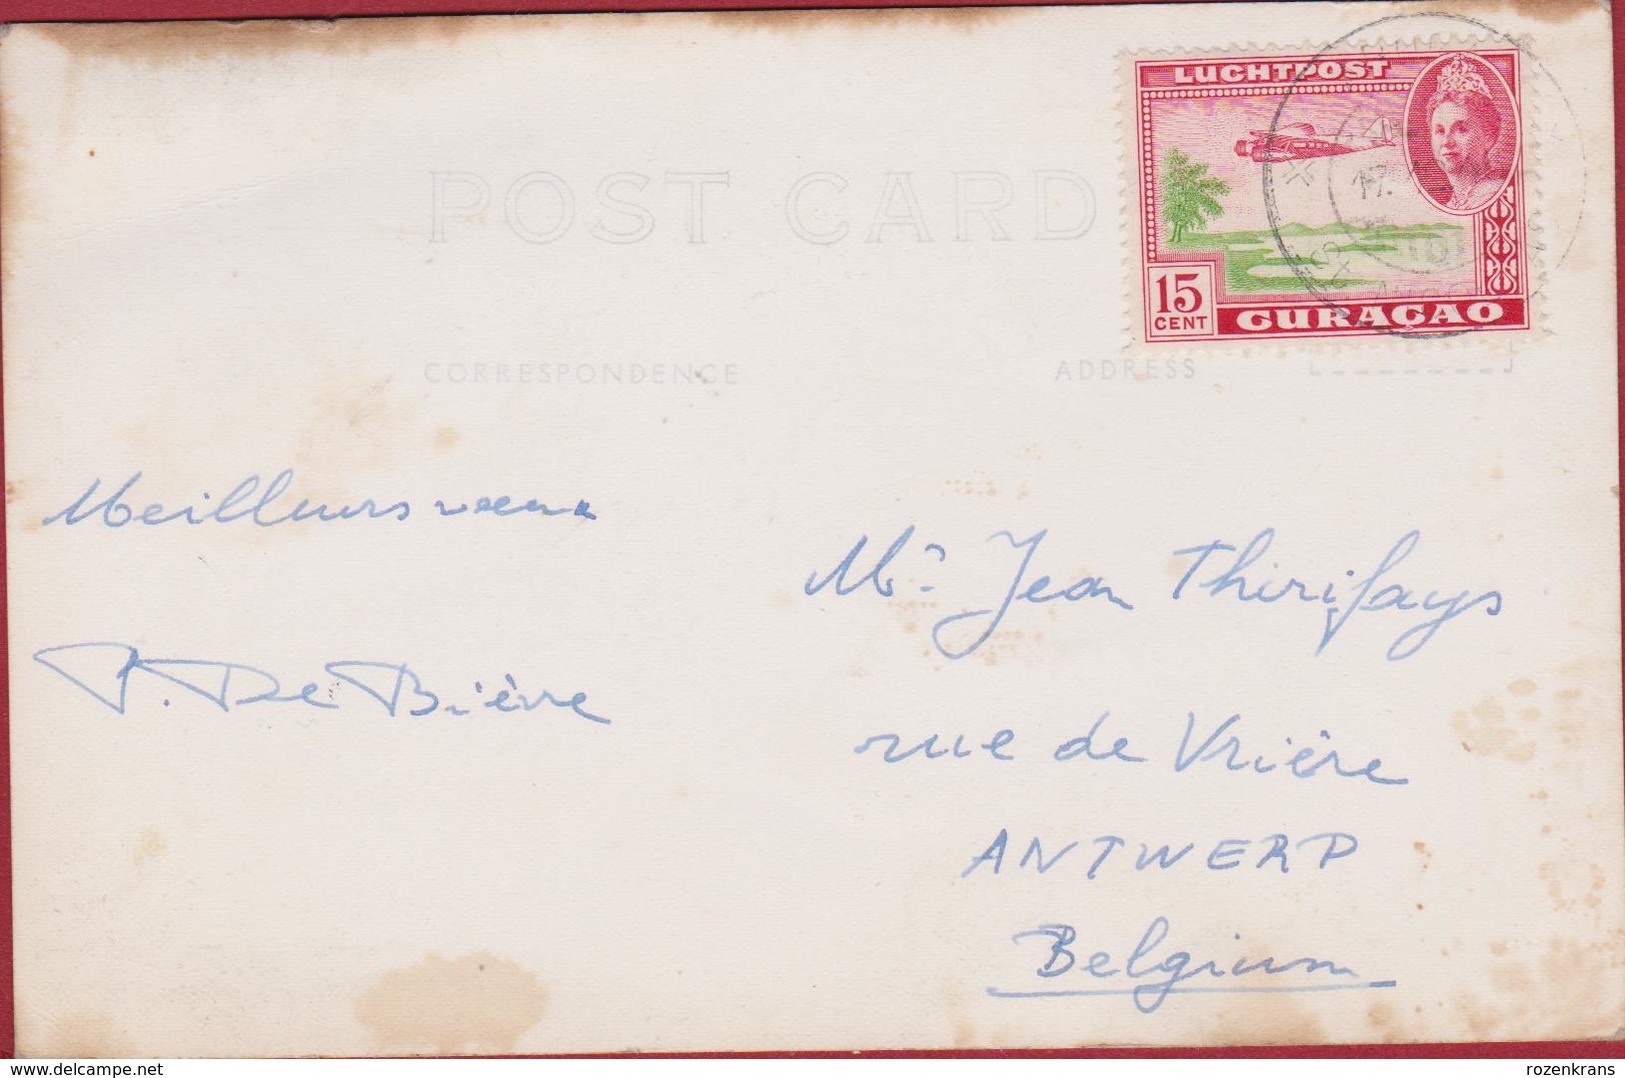 LUCHTPOST
POST CARD
17.
15
CENT
CURAÇAO
CORRESPONDENCE
ADDRESS
Meilleurs vœux
De Bièvre
Mr Jean Thirifays
rue de Vrière
ANTWERP
Belgium
delcampe.net
rozenkrans